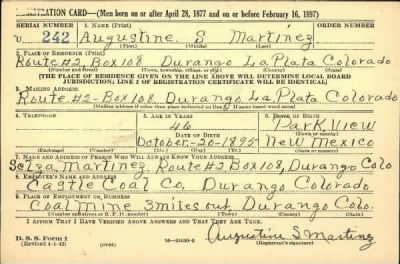 REGISTRATION CARD—(Men born on or after April 28, 1877 and on or before February 16, 1897)
SERIAL NUMBER 1. NAME (Print) ORDER NUMBER
U 242 Augustine S Martinez
(First) (Middle) (Last)
2. PLACE OF RESIDENCE (Print)
Route #2, Box 108 Durango La Plata Colorado
(Number and street) (Town, township, village, or city) (County) (State)
[THE PLACE OF RESIDENCE GIVEN ON THE LINE ABOVE WILL DETERMINE LOCAL BOARD
JURISDICTION; LINE 2 OF REGISTRATION CERTIFICATE WILL BE IDENTICAL]
3. MAILING ADDRESS
Route #2-Box 108, Durango La Plata Colorado
[Mailing address if other than place indicated on line 2. If same insert word same]
4. TELEPHONE 5. AGE IN YEARS 6. PLACE OF BIRTH
46 Park View
DATE OF BIRTH (Town or county)
October-20-1895 New Mexico
(Exchange) (Number) (Mo.) (Day) (Yr.) (State or country)
7. NAME AND ADDRESS OF PERSON WHO WILL ALWAYS KNOW YOUR ADDRESS
Martinez, Route #2, Box 108, Durango Colo
8. EMPLOYER'S NAME AND ADDRESS
Castle Coal Co, Durango Colorado
9. PLACE OF EMPLOYMENT OR BUSINESS
Coal Mine 3 miles out, Durango Colo.
(Number and street or R. F. D. number) (Town) (County) (State)
I AFFIRM THAT I HAVE VERIFIED ABOVE ANSWERS AND THAT THEY ARE TRUE.
D. S. S. Form 1
(Revised 4-1-42) (over) Augustine S. Martinez
(Registrant's signature)